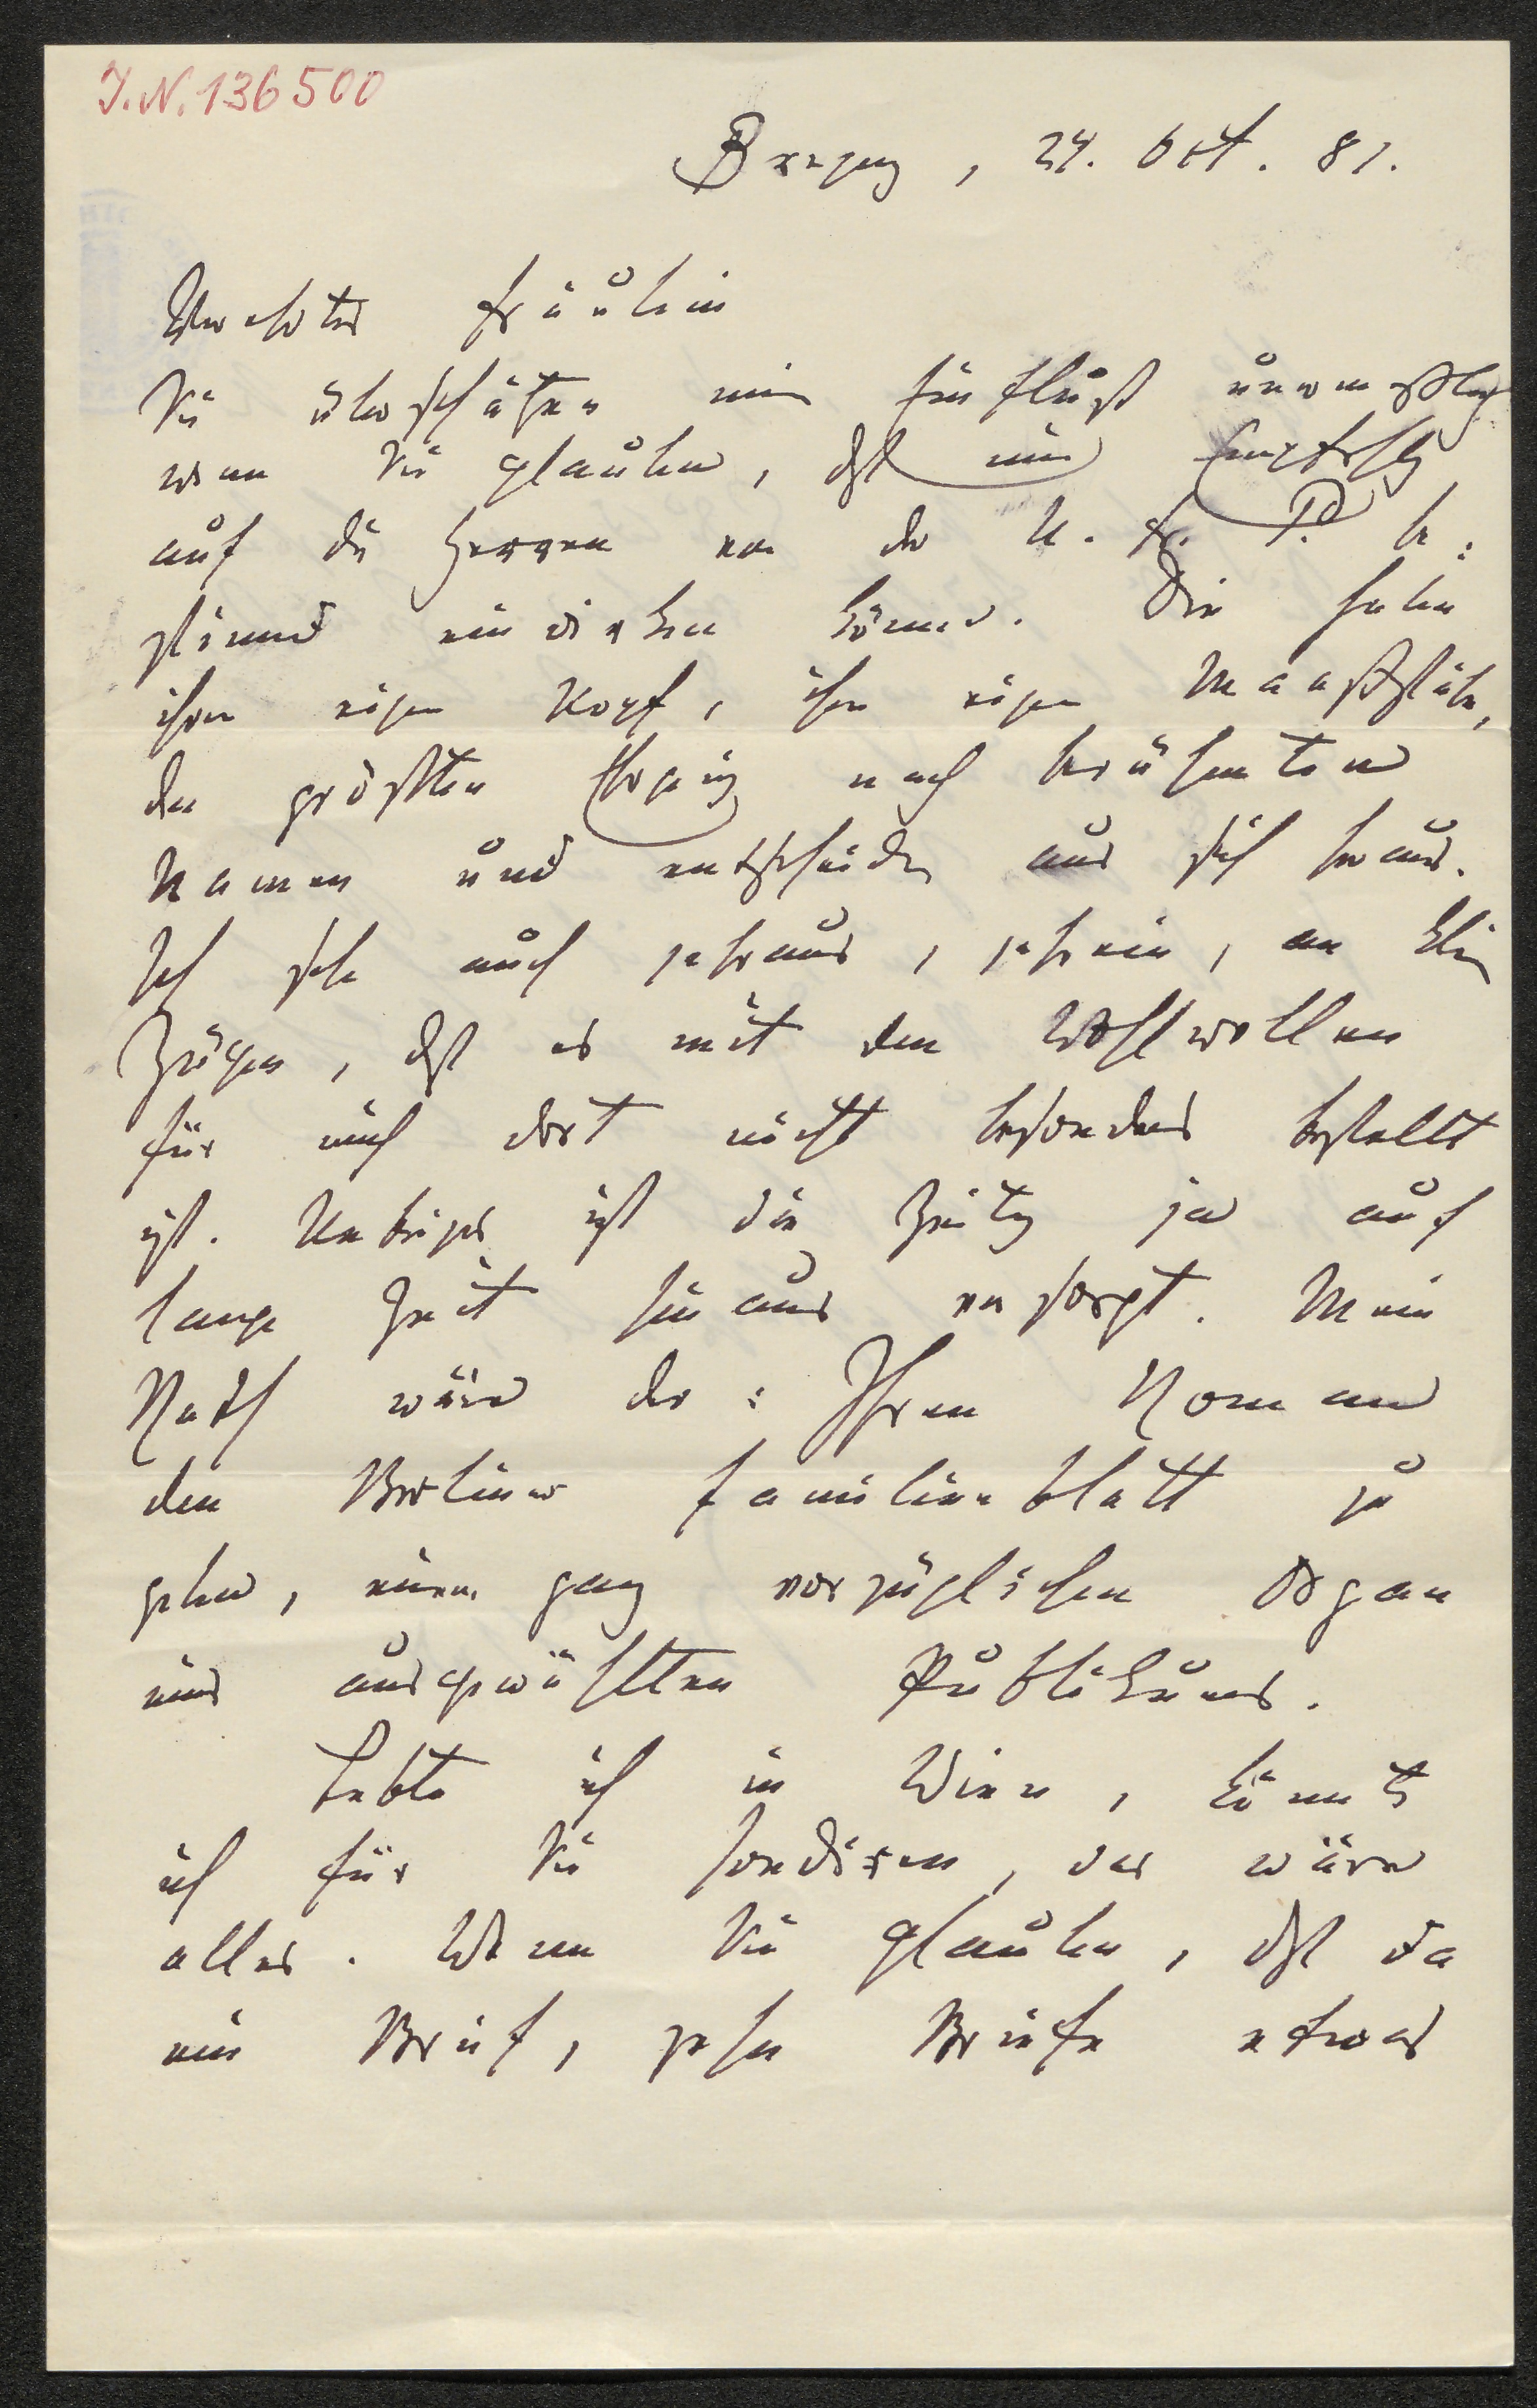 I.N. 136500
Bregenz, 24. Okt. 81.
Verehrtes Fräulein
Sie überschätzen mein Einfluß unermeßlich
wenn Sie glauben, dß meine Empfehlg
auf die Herren von der N. fr. P. be:
stimmend einwirken können. Die haben
ihren eigenen Kopf, ihre eigenen Maaßstäbe,
den größten Ehrgeiz nach berühmten
Namen und entscheiden aus sich heraus.
Ich sehe auch jahraus, jahrein, an klein
Zügen, dß es mit dem Wohlwollen
für mich dort nicht besonders bestellt
ist. Uebriges ist die Zeitg ja auf
lange Zeit hinaus versorgt. Mein
Rath wäre der: Ihren Roman
dem Berliner Familienblatt zu
geben, einem ganz vorzüglichen Organ
eines ausgewählten Publikums.
Lebte ich in Wien, könnte
ich für Sie sondiren, das wäre
alles. Wenn Sie glauben, dß da
ein Brief, zehn Briefe etwas